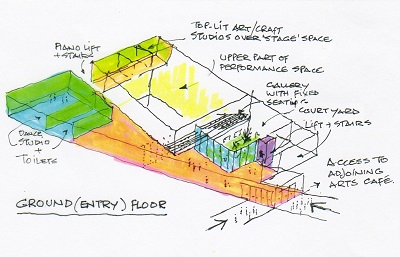 TOP-LIT ART/CRAFT
STUDIOS OVER 'STAGE' SPACE
PIANO LIFT
+ STAIRS
UPPER PART OF
PERFORMANCE SPACE
GALLERY
WITH FIXED
SEATING
COURTYARD
LIFT + STAIRS
DANCE
STUDIO
+
TOILETS
ACCESS TO
ADJOINING
ARTS CAFÉ.
GROUND (ENTRY) FLOOR